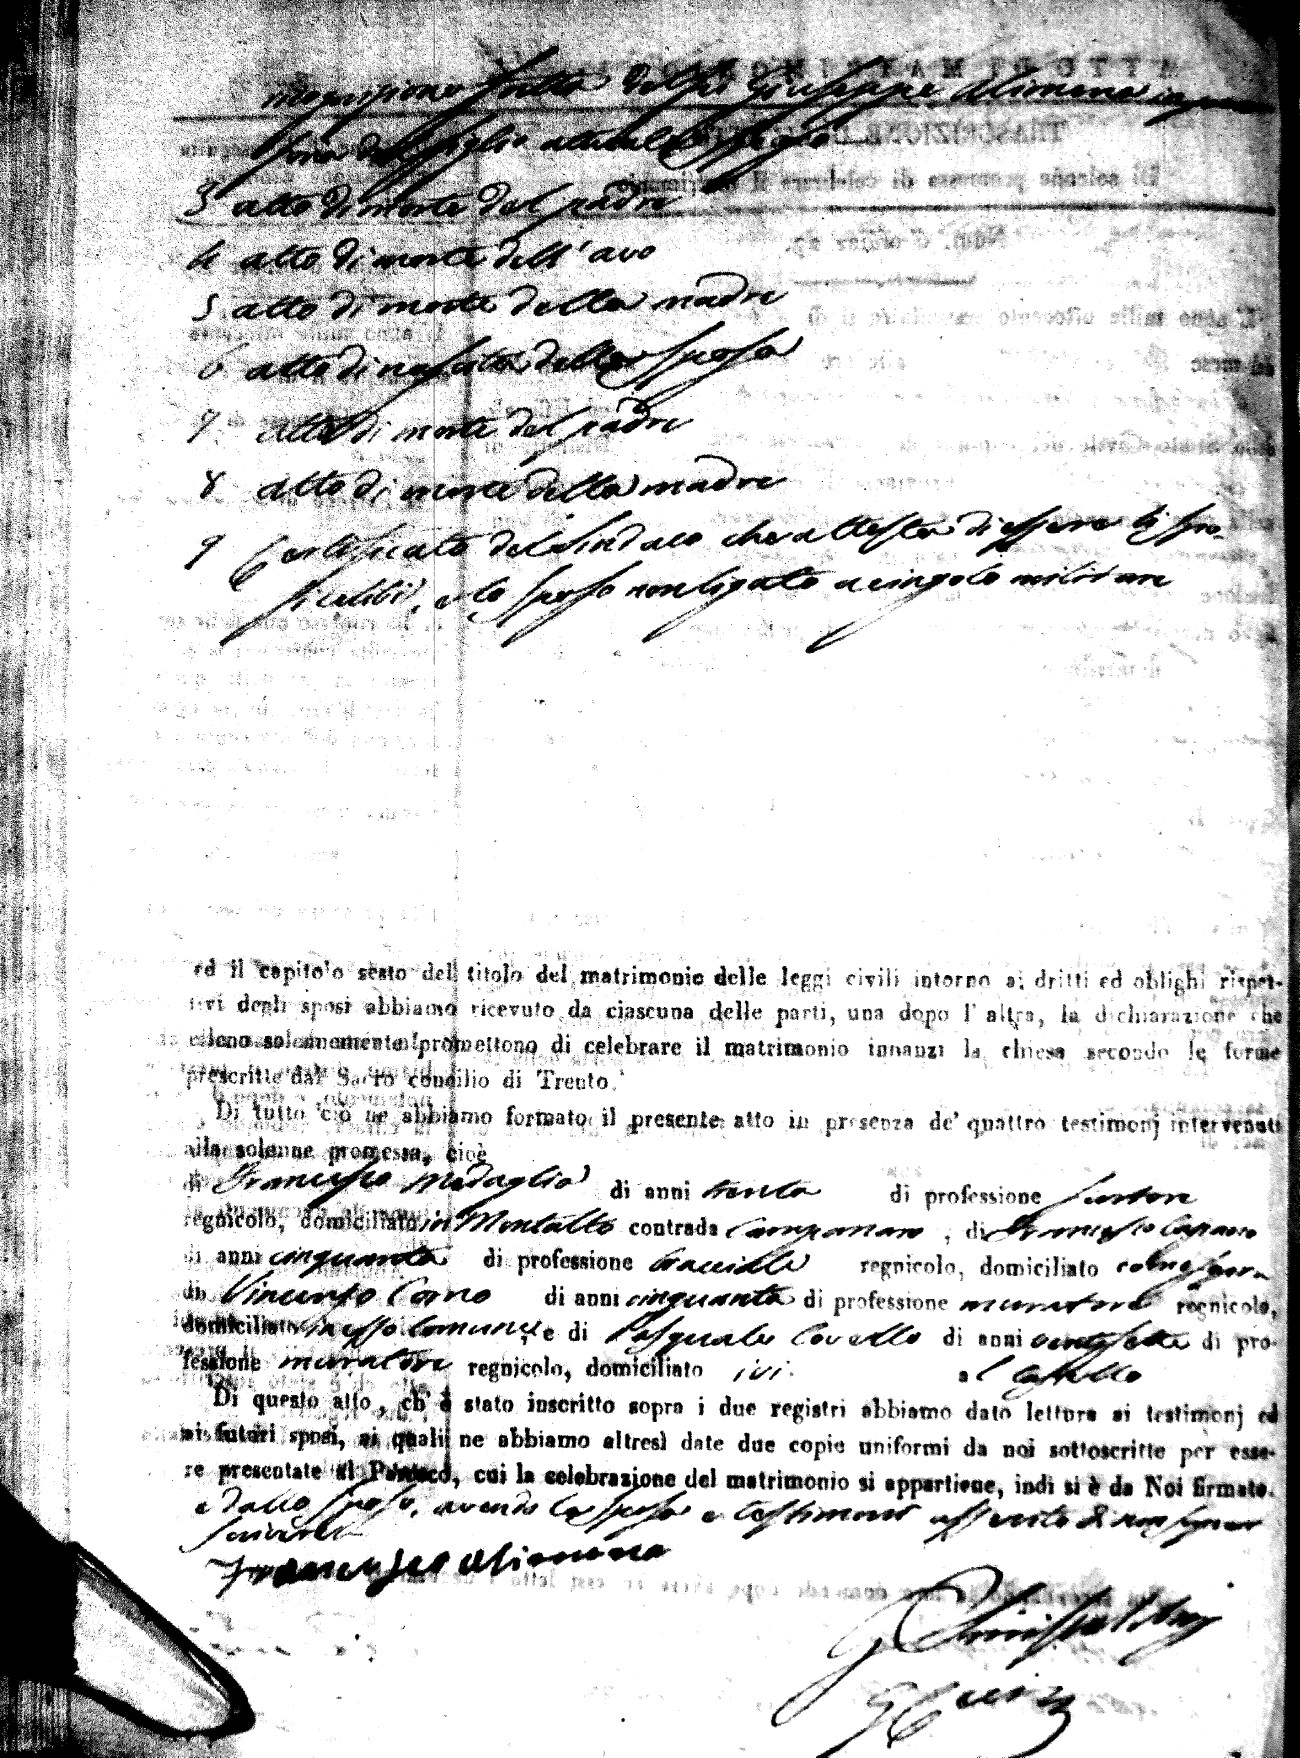 fatta dal fu Giuseppe Alimena in per
sona del figlio attuale sposo
3 atto di morte del padre
4 atto di morte dell'avo
5 atto di morte della madre
6 atto di nascita della sposa
7 atto di morte del padre
8 atto di morte della madre
9 Certificato del Sindaco che attesta di essere li spo-
si celibi, e lo sposo non ligato a cingolo militare
ed il capitolo sesto del titolo del matrimonio delle leggi civili intorno ai dritti ed oblighi rispet-
tivi degli sposi abbiamo ricevuto da ciascuna delle parti, una dopo l'altra, la dichiarazione che
elleno solennemente promettono di celebrare il matrimonio innanzi la chiesa secondo le forme
prescritte dal Sacro concilio di Trento.
Di tutto ciò ne abbiamo formato il presente atto in presenza de' quattro testimonj intervenuti
alla solenne promessa, cioè
di Francesco Medaglia di anni trenta di professione sartore
regnicolo, domiciliato in Montalto contrada , di Francesco
di anni cinquanta di professione bracciale regnicolo, domiciliato
di Vincenzo di anni cinquanta di professione muratore regnicolo,
domiciliato in esso Comune, e di Pasquale Covello di anni ventisette di pro-
fessione muratore regnicolo, domiciliato ivi al Castello
Di questo atto, ch'è stato inscritto sopra i due registri abbiamo dato lettura ai testimonj ed
ai futuri sposi, ai quali ne abbiamo altresì date due copie uniformi da noi sottoscritte per esse-
re presentate al Parroco, cui la celebrazione del matrimonio si appartiene, indi si è da Noi firmato.
e dallo sposo, avendo la sposa e testimoni asserito di non saper
scrivere
Francesco Alimena